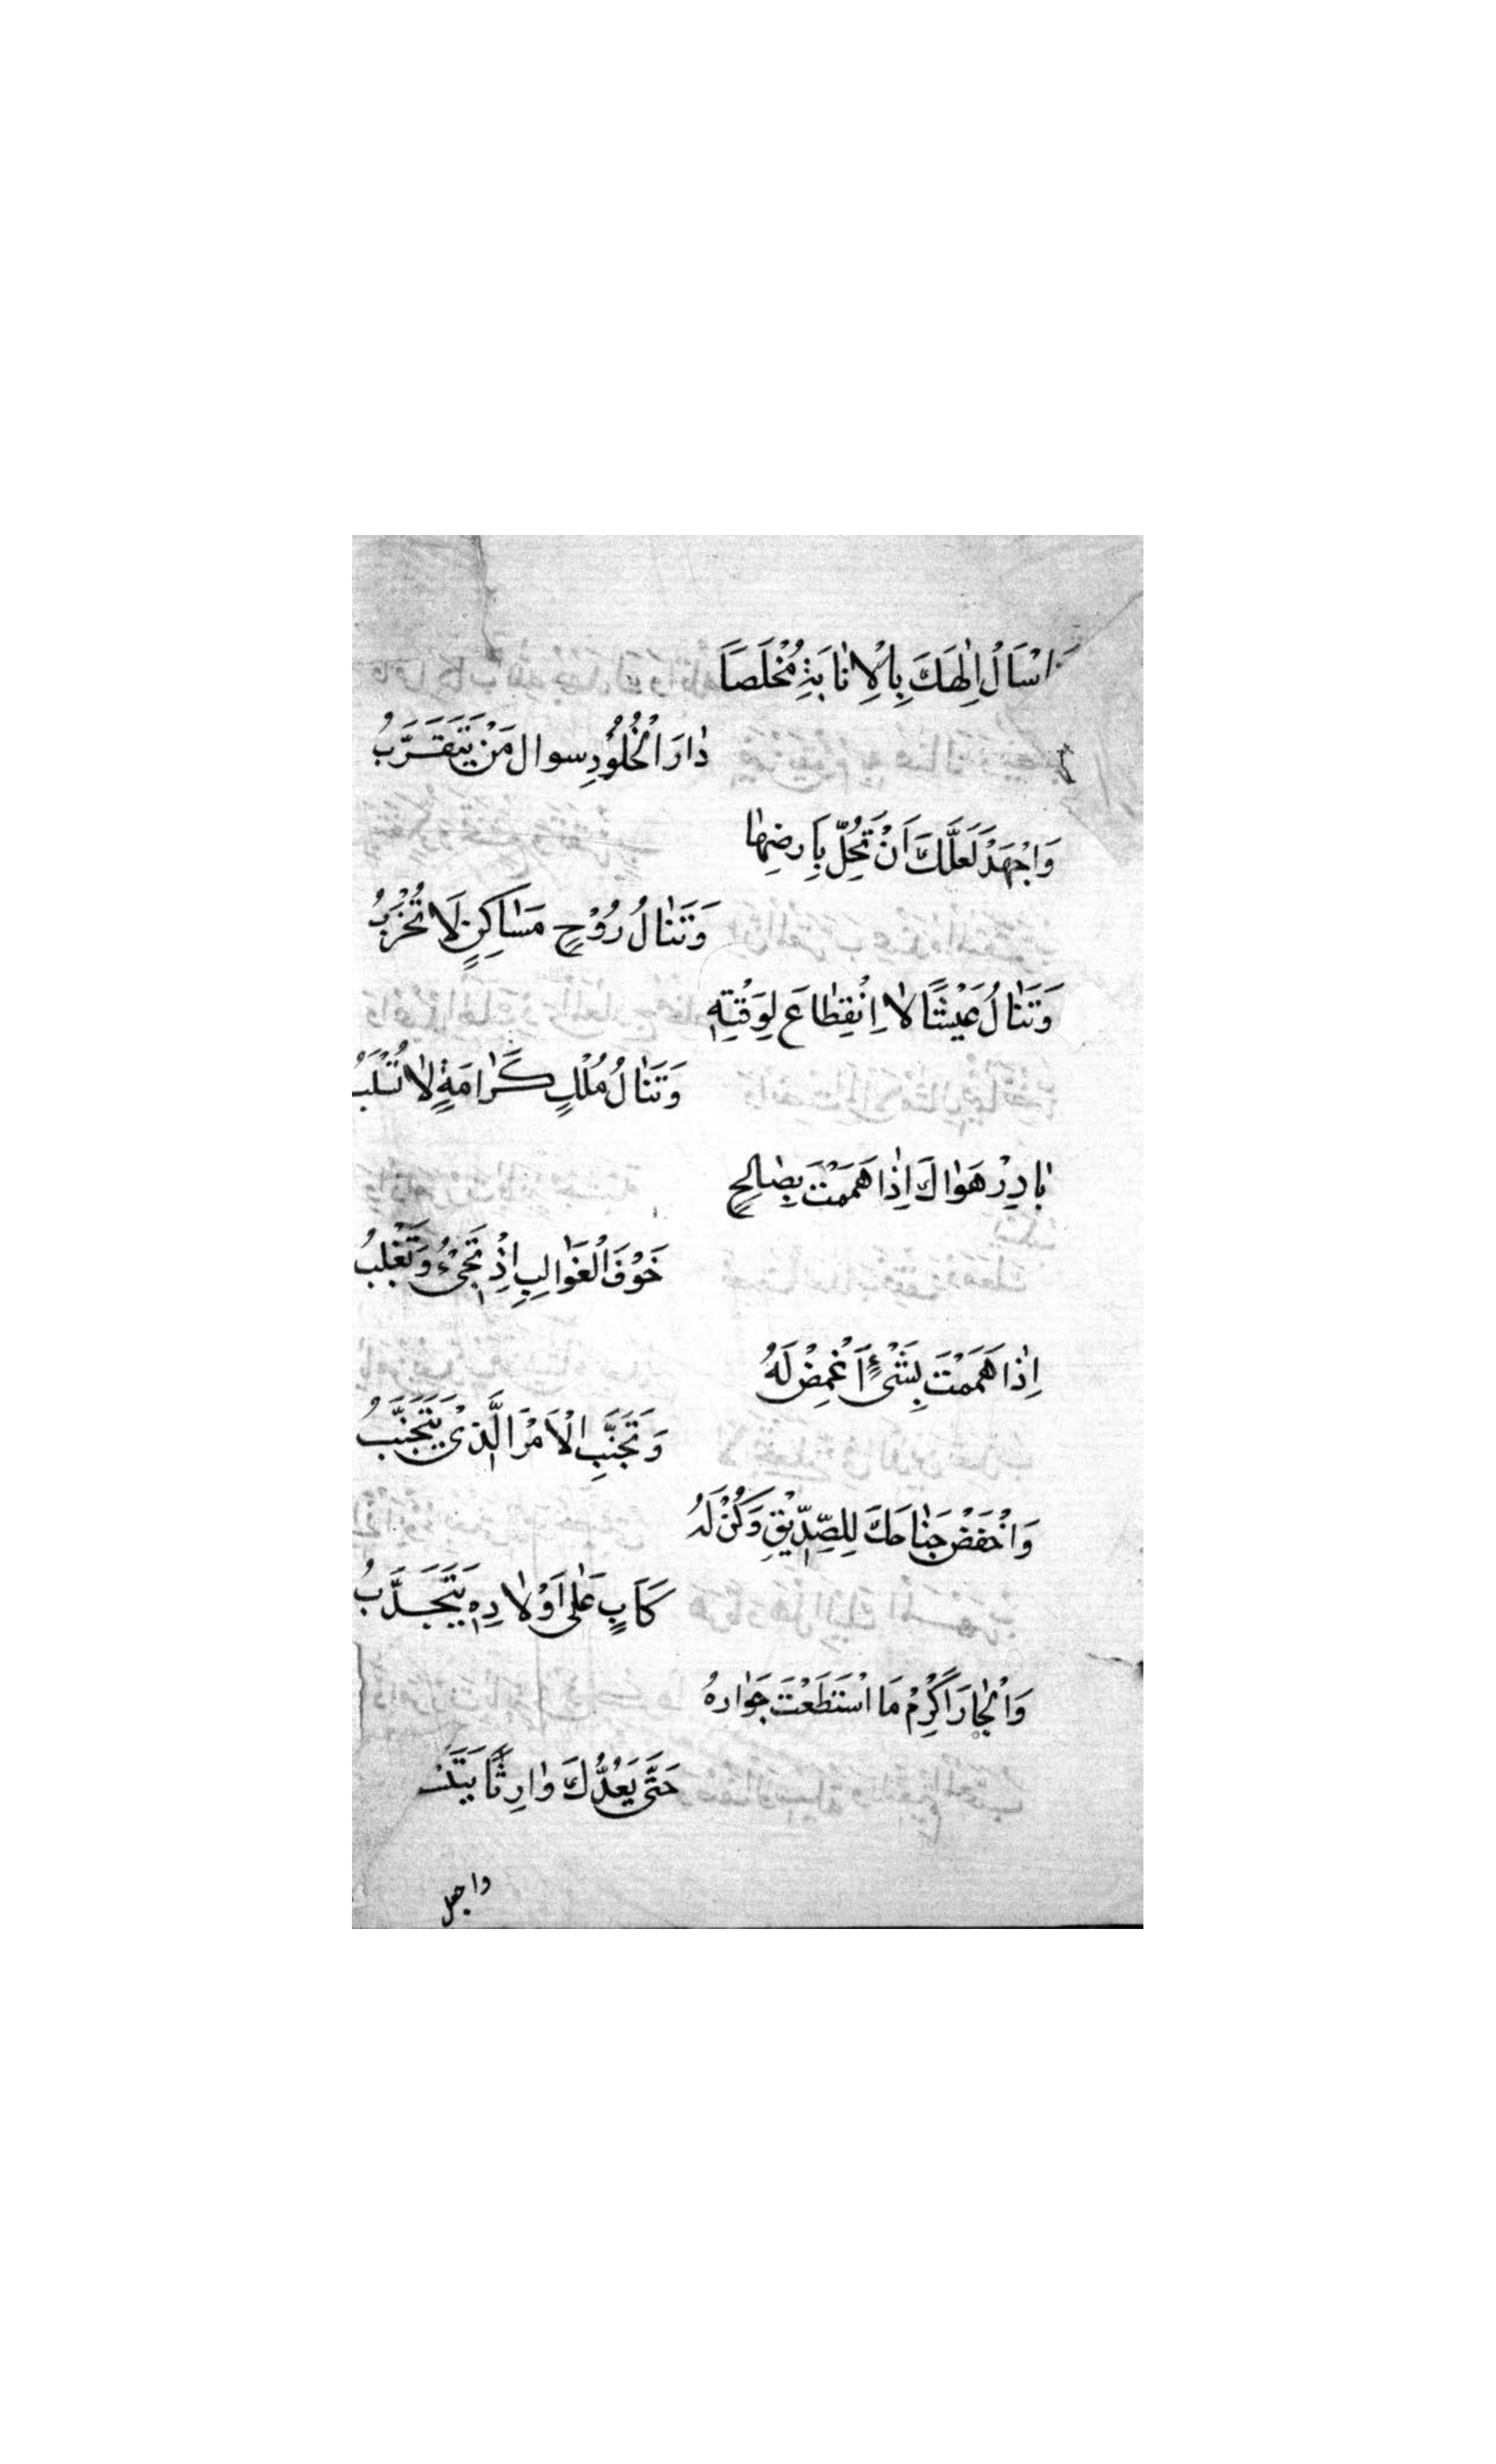 وَاسْأَلْ اِلٰهَكَ بِالْاِنَابَةِ مُخْلَصَاً
دَارَ الْخُلُوْدِ سوال مَنْ يَتَقَرَّبُ
وَاجْهَدْ لَعَلَّكَ اَنْ تَحُلَّ بِاَرضِهَا
وَتَنَالُ رُوْحٍ مَسَاكِنٍ لَا تُخْرَبُ
وَتَنَالُ عَيْشًا لَا اِنْقِطَاعَ لِوَقْتِهِ
وَتَنَالُ مُلْكٍ كَرَامَةٍ لَا تُسْلَبُ
بَادِرْ هَوَاكَ اِذَا هَمَمْتَ بِصَالِحٍ
خَوْفَ الْغَوَالِبِ اِذْ تَجِیْءُ وَتَغْلِبُ
اِذَا هَمَمْتَ بِشَیْءٍ اَغْمِضْ لَهُ
وَتَجَنَّبِ الْاَمْرَ الَّذِیْ يَتَجَنَّبُ
وَاخْفَضْ جَنَاحَكَ لِلصِّدِّيْقِ وَكُنْ لَهُ
كَاَبٍ عَلٰی اَوْلَادِهِ يَتَحَدَّبُ
وَالْجَارَ اَكْرِمْ مَا اسْتَطَعْتَ جَوَارهُ
حَتَّی يَعُدُّكَ وَارِثًا
واجعل